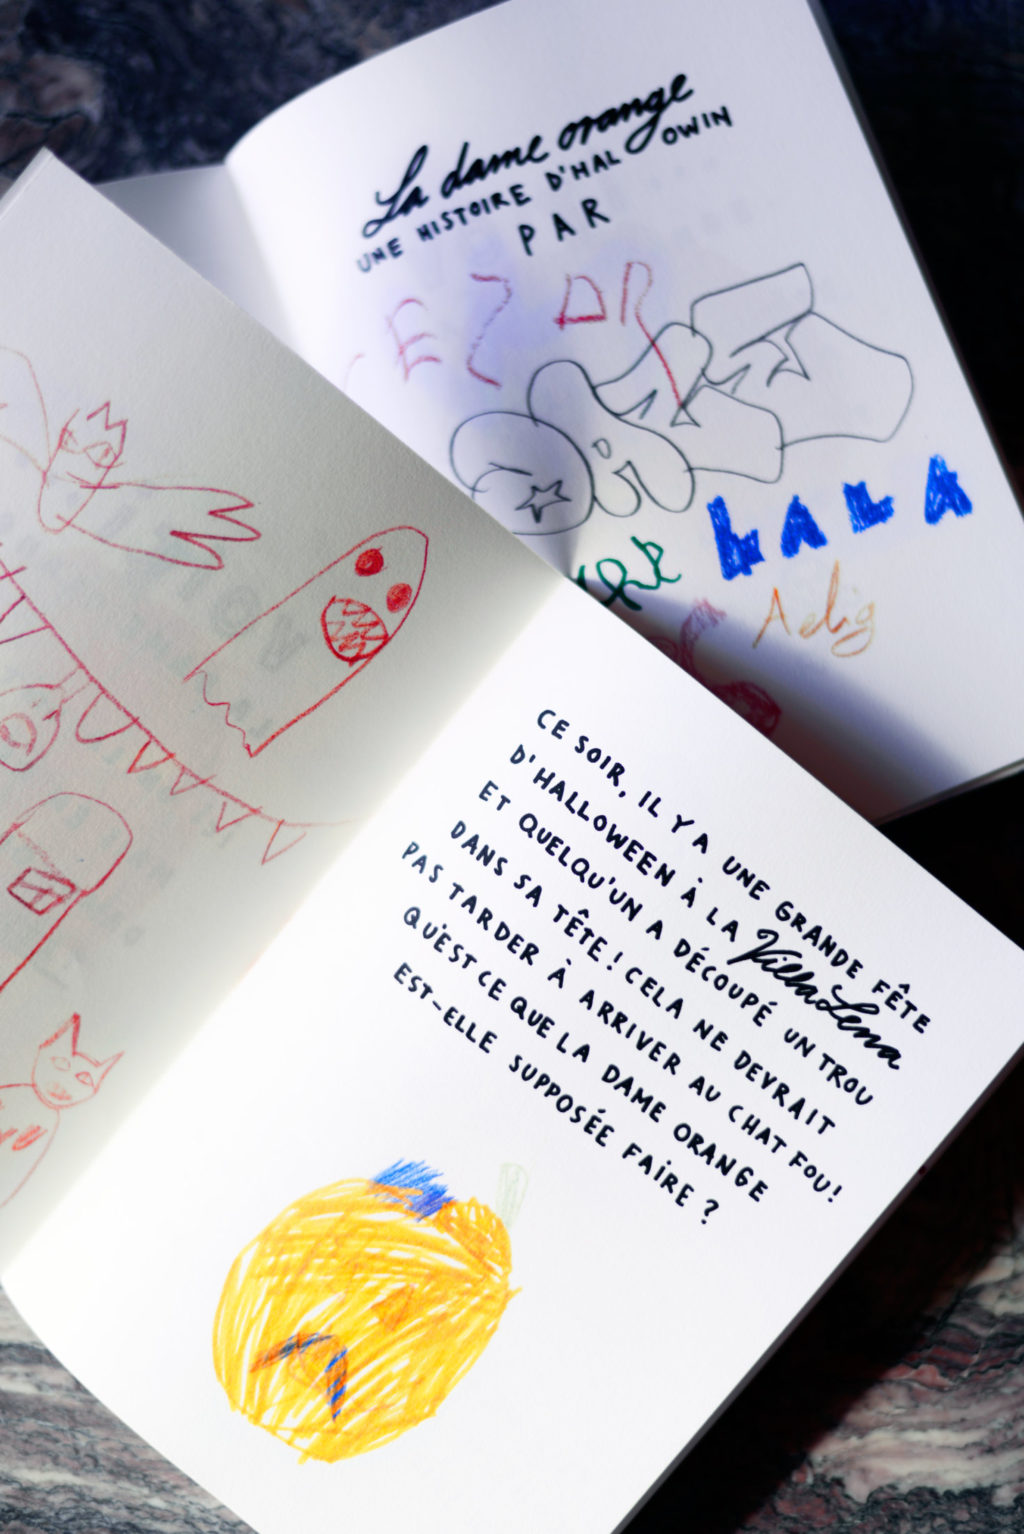 La dame orange
UNE HISTOIRE D'HALLOWIN
PAR
CEZAR
LALA
Adig
CE SOIR, IL Y A UNE GRANDE FÊTE
D'HALLOWEEN À LA Villa Lena
ET QUELQU'UN A DÉCOUPÉ UN TROU
DANS SA TÊTE! CELA NE DEVRAIT
PAS TARDER À ARRIVER AU CHAT FOU!
QU'EST CE QUE LA DAME ORANGE
EST-ELLE SUPPOSÉE FAIRE ?